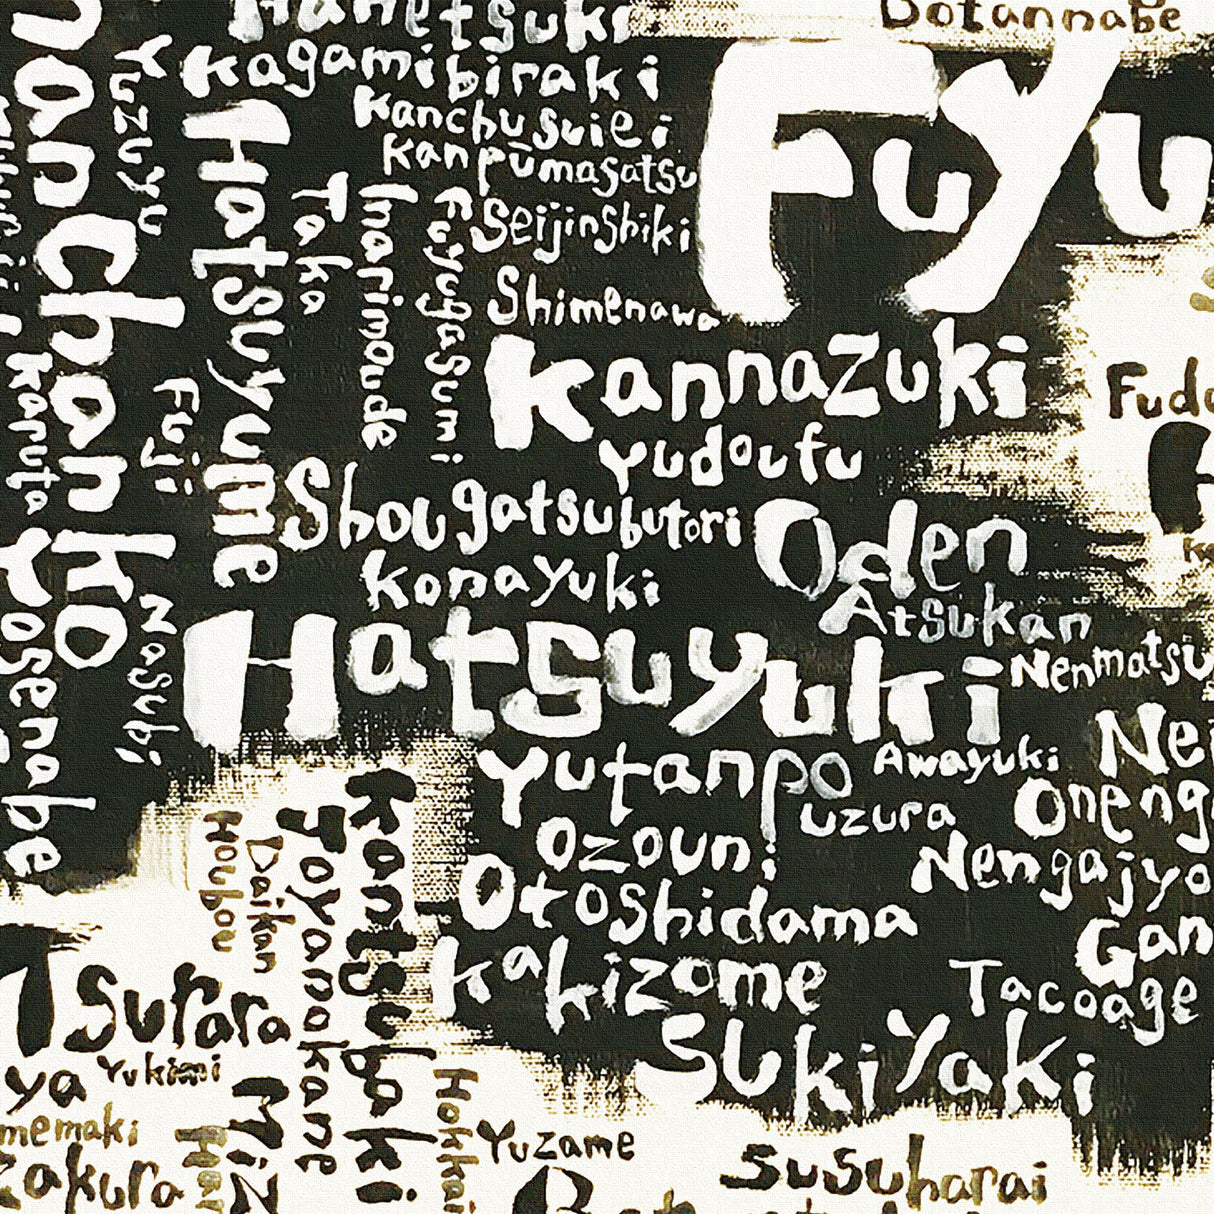 Hanetsuki
Botannabe
Kagamibiraki
Kanchusuiei
Kanpūmasatsu
Seijinshiki
Shimenawa
Fuyu
Yuzuyu
Hatsuyume
Taka
Imarimoude
Fuyugasumi
Kannazuki
Yudoufu
Shougatsubutori
Konayuki
Oden
Atsukan
Hatsuyuki
Nenmatsu
Yutanpo
Awayuki
uzura
Ozouni
Otoshidama
Kakizome
Nengajyo
Oneng
Ne
Gan
Tacoage
Sukiyaki
Fuji
Nasubi
Karuta
nanchanko
Yosenabe
Houbou
Daikan
Toyanokame
Kantsubaki
Tsurara
Yukimi
ya
memaki
zakura
Miz
Hokkai
Yuzame
Susuharai